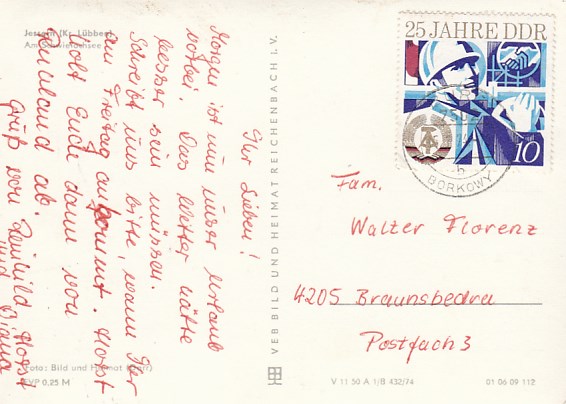 Jessern (Kr. Lübben)
Am Schwielochsee
Ihr Lieben!
Morgen ist nun unser Urlaub
vorbei. Das Wetter hätte
besser sein müssen.
Schreibt uns bitte, wann Ihr
am Freitag ankommt. Horst
holt Euch dann von
ab.
Gruß von Reinhild, Horst
und Diana
Foto: Bild und Heimat
EVP 0.25 M
VEB BILD UND HEIMAT REICHENBACH I. V.
25 JAHRE DDR
10
BORKOWY
Fam.
Walter Florenz
4205 Braunsbedra
Postfach 3
V 11 50 A 1/B 432/74
01 06 09 112